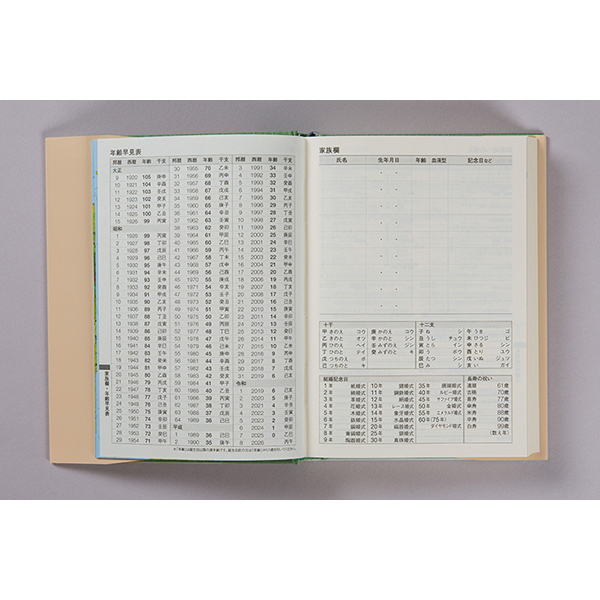 年齢早見表
邦暦 西暦 年齢 干支
大正
9 1920 105 庚申
10 1921 104 辛酉
11 1922 103 壬戌
12 1923 102 癸亥
13 1924 101 甲子
14 1925 100 乙丑
15 1926 99 丙寅
昭和
1 1926 99 丙寅
2 1927 98 丁卯
3 1928 97 戊辰
4 1929 96 己巳
5 1930 95 庚午
6 1931 94 辛未
7 1932 93 壬申
8 1933 92 癸酉
9 1934 91 甲戌
10 1935 90 乙亥
11 1936 89 丙子
12 1937 88 丁丑
13 1938 87 戊寅
14 1939 86 己卯
15 1940 85 庚辰
16 1941 84 辛巳
17 1942 83 壬午
18 1943 82 癸未
19 1944 81 甲申
20 1945 80 乙酉
21 1946 79 丙戌
22 1947 78 丁亥
23 1948 77 戊子
24 1949 76 己丑
25 1950 75 庚寅
26 1951 74 辛卯
27 1952 73 壬辰
28 1953 72 癸巳
29 1954 71 甲午
邦暦 西暦 年齢 干支
30 1955 70 乙未
31 1956 69 丙申
32 1957 68 丁酉
33 1958 67 戊戌
34 1959 66 己亥
35 1960 65 庚子
36 1961 64 辛丑
37 1962 63 壬寅
38 1963 62 癸卯
39 1964 61 甲辰
40 1965 60 乙巳
41 1966 59 丙午
42 1967 58 丁未
43 1968 57 戊申
44 1969 56 己酉
45 1970 55 庚戌
46 1971 54 辛亥
47 1972 53 壬子
48 1973 52 癸丑
49 1974 51 甲寅
50 1975 50 乙卯
51 1976 49 丙辰
52 1977 48 丁巳
53 1978 47 戊午
54 1979 46 己未
55 1980 45 庚申
56 1981 44 辛酉
57 1982 43 壬戌
58 1983 42 癸亥
59 1984 41 甲子
60 1985 40 乙丑
61 1986 39 丙寅
62 1987 38 丁卯
63 1988 37 戊辰
64 1989 36 己巳
平成
1 1989 36 己巳
2 1990 35 庚午
邦暦 西暦 年齢 干支
3 1991 34 辛未
4 1992 33 壬申
5 1993 32 癸酉
6 1994 31 甲戌
7 1995 30 乙亥
8 1996 29 丙子
9 1997 28 丁丑
10 1998 27 戊寅
11 1999 26 己卯
12 2000 25 庚辰
13 2001 24 辛巳
14 2002 23 壬午
15 2003 22 癸未
16 2004 21 甲申
17 2005 20 乙酉
18 2006 19 丙戌
19 2007 18 丁亥
20 2008 17 戊子
21 2009 16 己丑
22 2010 15 庚寅
23 2011 14 辛卯
24 2012 13 壬辰
25 2013 12 癸巳
26 2014 11 甲午
27 2015 10 乙未
28 2016 9 丙申
29 2017 8 丁酉
30 2018 7 戊戌
31 2019 6 己亥
令和
1 2019 6 己亥
2 2020 5 庚子
3 2021 4 辛丑
4 2022 3 壬寅
5 2023 2 癸卯
6 2024 1 甲辰
7 2025 0 乙巳
8 2026
家族欄・年齢早見表
家族欄
氏名 生年月日 年齢 血液型 記念日など
十干
甲 きのえ コウ
乙 きのと オツ
丙 ひのえ ヘイ
丁 ひのと テイ
戊 つちのえ ボ
己 つちのと キ
庚 かのえ コウ
辛 かのと シン
壬 みずのえ ジン
癸 みずのと キ
十二支
子 ね シ
丑 うし チュウ
寅 とら イン
卯 う ボウ
辰 たつ シン
巳 み シ
午 うま ゴ
未 ひつじ ビ
申 さる シン
酉 とり ユウ
戌 いぬ ジュツ
亥 い ガイ
結婚記念日
1年 紙婚式
2年 綿婚式
3年 革婚式
4年 花婚式
5年 木婚式
6年 鉄婚式
7年 銅婚式
8年 青銅婚式
9年 陶器婚式
10年 錫婚式
11年 鋼鉄婚式
12年 絹婚式
13年 レース婚式
14年 象牙婚式
15年 水晶婚式
20年 磁器婚式
25年 銀婚式
30年 真珠婚式
35年 珊瑚婚式
40年 ルビー婚式
45年 サファイア婚式
50年 金婚式
55年 エメラルド婚式
60年(75年)
ダイヤモンド婚式
長寿の祝い
還暦 61歳
古稀 70歳
喜寿 77歳
傘寿 80歳
米寿 88歳
卒寿 90歳
白寿 99歳
(数え年)